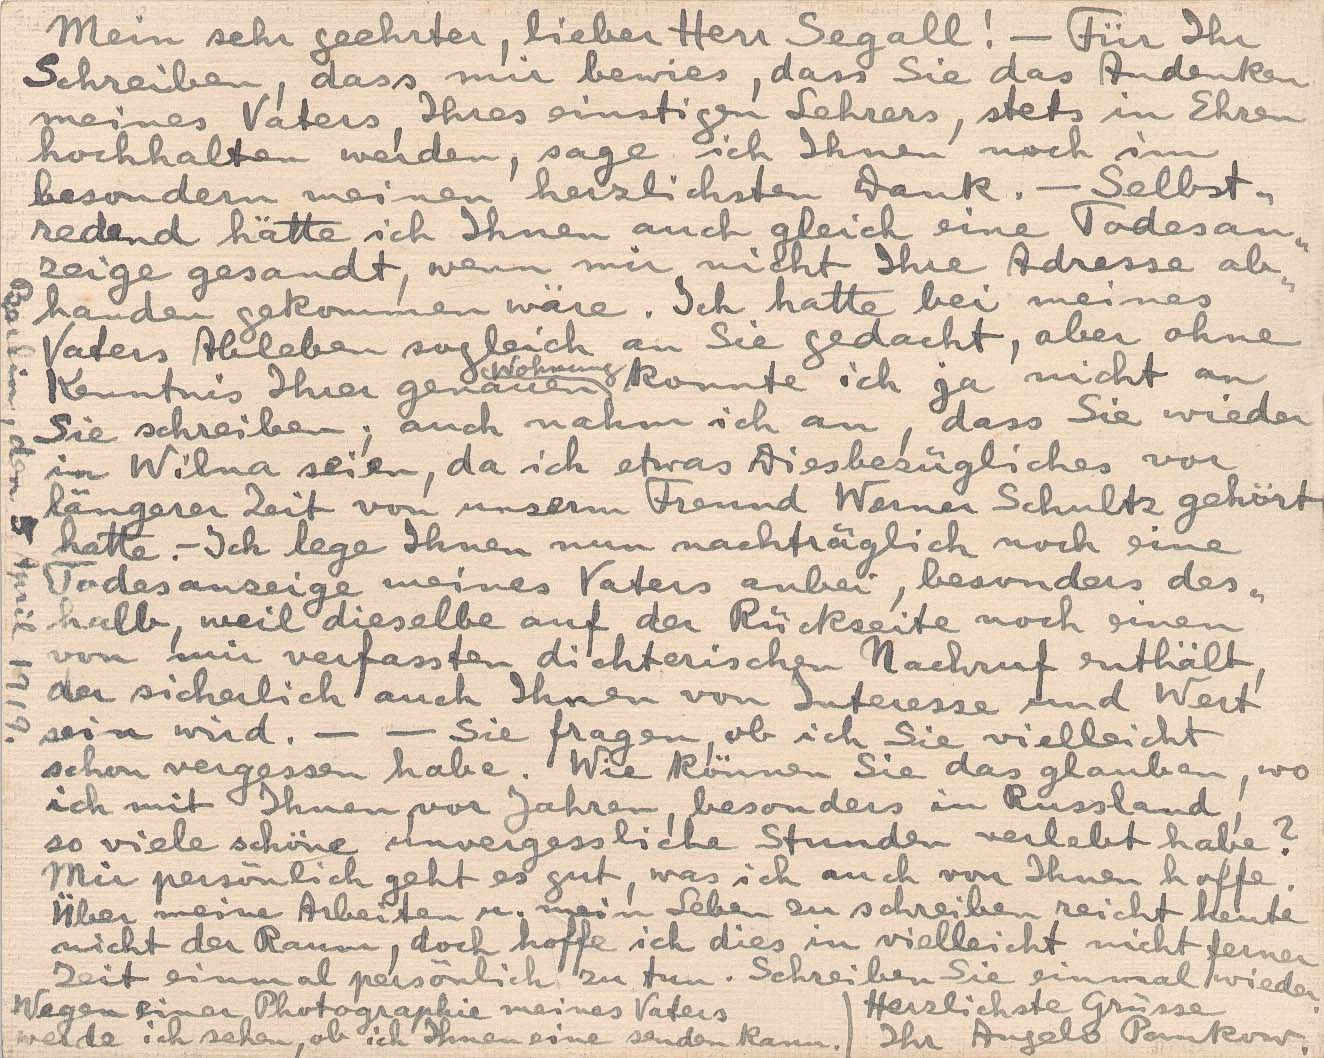 Mein sehr geehrter, lieber Herr Segall! — Für Ihr
Schreiben, dass mir bewies, dass Sie das Andenken
meines Vaters, Ihres einstigen Lehrers, stets in Ehren
hochhalten werden, sage ich Ihnen noch im
besondern meinen herzlichsten Dank. — Selbst„
redend hätte ich Ihnen auch gleich eine Todesan„
zeige gesandt, wenn mir nicht Ihre Adresse ab„
handen gekommen wäre. Ich hatte bei meines
Vaters Ableben sogleich an Sie gedacht, aber ohne
Kenntnis Ihrer genauen Wohnung konnte ich ja nicht an
Sie schreiben; auch nahm ich an, dass Sie wieder
in Wilna seien, da ich etwas Diesbezügliches vor
längerer Zeit von unserm Freund Werner Schultz gehört
hatte. – Ich lege Ihnen nun nachträglich noch eine
Todesanzeige meines Vaters anbei, besonders des„
halb, weil dieselbe auf der Rückseite noch einen
von mir verfassten dichterischen Nachruf enthält,
der sicherlich auch Ihnen von Interesse und Wert
sein wird. — — Sie fragen, ob ich Sie vielleicht
schon vergessen habe. Wie können Sie das glauben, wo
ich mit Ihnen vor Jahren, besonders in Russland,
so viele schöne unvergessliche Stunden verlebt habe?
Mir persönlich geht es gut, was ich auch von Ihnen hoffe.
Über meine Arbeiten u. mein Leben zu schreiben reicht heute
nicht der Raum, doch hoffe ich dies in vielleicht nicht ferner
Zeit einmal persönlich zu tun. Schreiben Sie einmal wieder.
Wegen einer Photographie meines Vaters
werde ich sehen, ob ich Ihnen eine senden kann.
Herzlichste Grüsse
Ihr Angelo Pankow.
Berlin, den 5. April 1919.